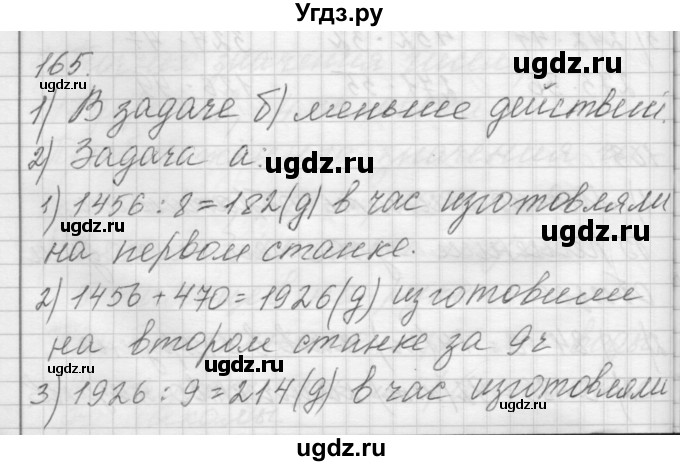 Угдз.ру
165.
1) В задаче б) меньше действий.
ugdz.ru
2) Задача а:
ugdz.ru
ugdz.ru
1) 1456 : 8 = 182 (д) в час изготовляли
ugdz.ru
ugdz.ru
на первом станке.
2) 1456 + 470 = 1926 (д) изготовили
ugdz.ru
на втором станке за 9ч
ugdz.ru
3) 1926 : 9 = 214 (д) в час изготовляли
ugdz.ru
ugdz.ru